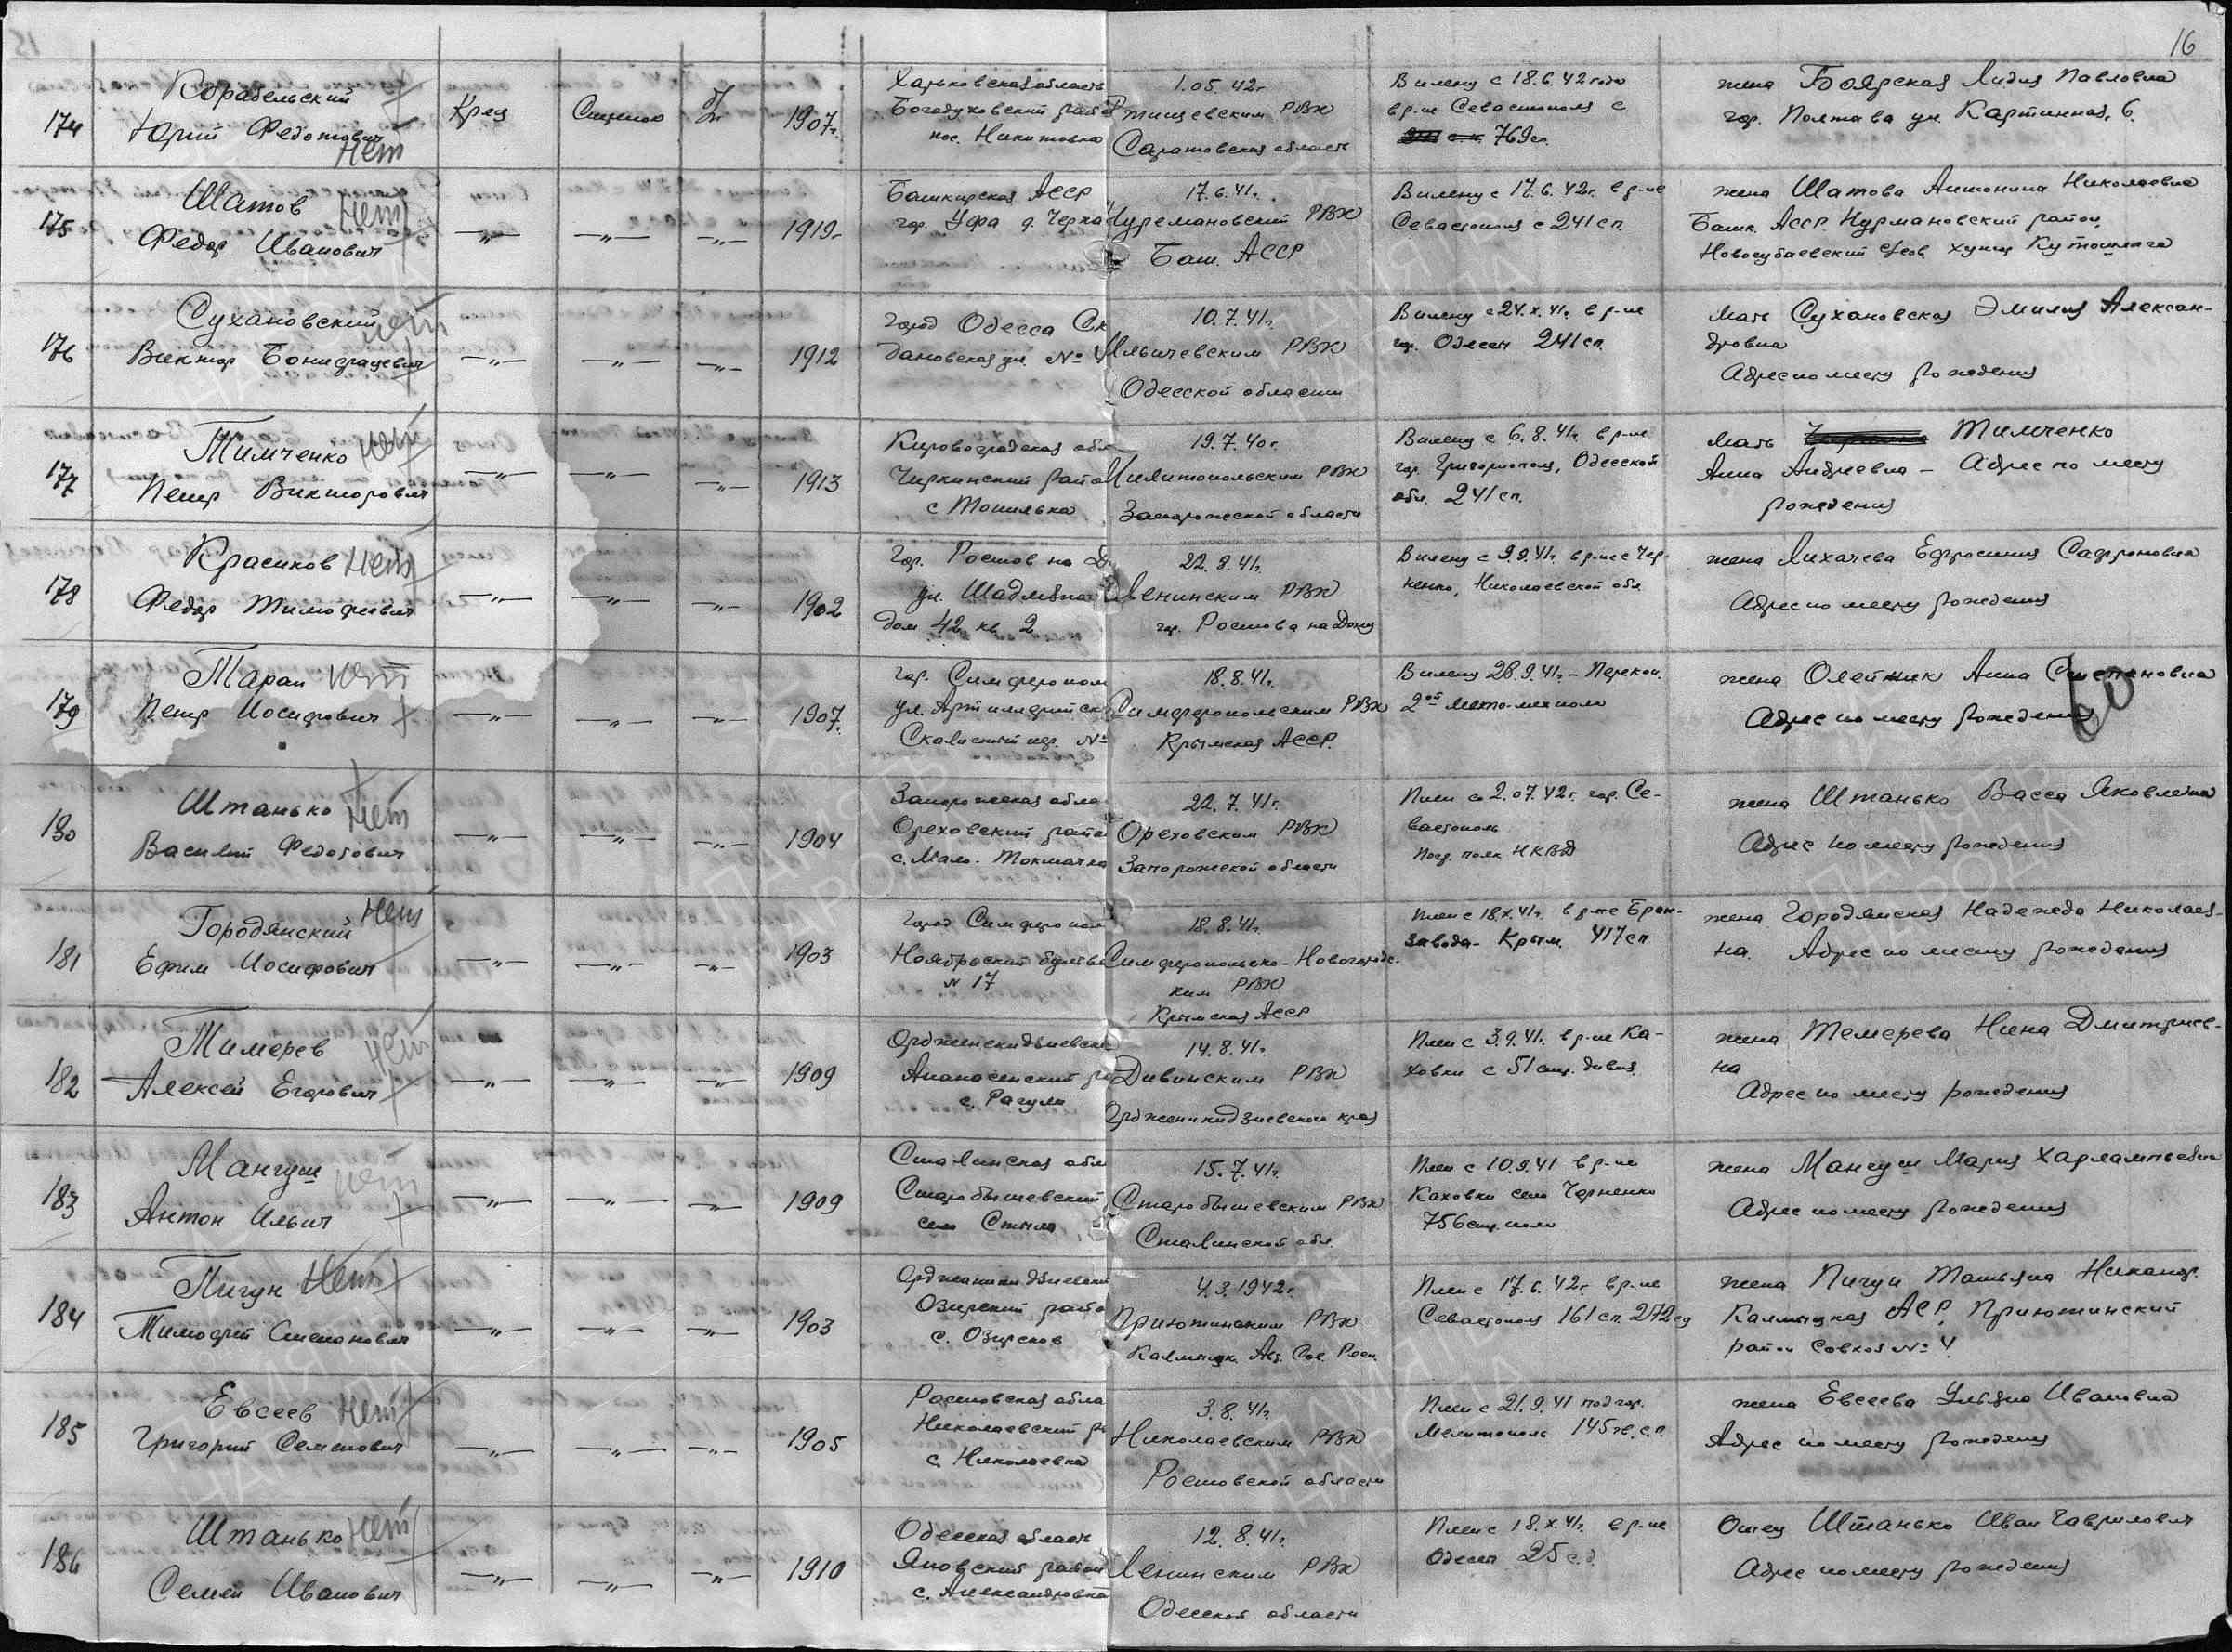 16
174
Корабельский
Юрий Федотович
Нет
Крец
б/п
1907г.
Харьковская область
Богодуховский
пос. Никитовка
1.05.42г.
РВК
Саратовская область
В плену с 18.6.42 года
в р-не Севастополя с
769сп.
жена Боярская Лидия Павловна
гор. Полтава ул. Картинная, 6.
175
Шатов Нет
Федор Иванович
—„—
—„—
—„—
1919г.
Башкирская АССР
гор. Уфа д.
17.6.41г.
РВК
Баш. АССР
В плену с 17.6.42г. в р-не
Севастополя с 241 сп.
жена Шатова Антонина Николаевна
Башк. АССР Нурмановский район
176
Сухановский Нет
Виктор Бонифацевич
—„—
—„—
—„—
1912
город Одесса
ул. №
10.7.41г.
Ильичевским РВК
Одесской области
В плену с 24.X.41г. в р-не
гор. Одессы 241 сп.
Мать Сухановская Эмилия Алексан-
дровна
Адрес по месту рождения
177
Тимченко Нет
Петр Викторович
—„—
—„—
—„—
1913
Кировоградская
с
19.7.40г.
РВК
Запорожской области
В плену с 6.8.41г. в р-не
гор. Григориополя, Одесской
обл. 241 сп.
мать Тимченко
Анна Андреевна — Адрес по месту
рождения
178
Красиков Нет
Федор Тимофеевич
—„—
—„—
—„—
1902
Гор. Ростов на
ул.
дом 42 кв 2
22.8.41г.
Ленинским РВК
гор. Ростова на Дону
В плену с 9.9.41г. в р-не с Чер-
ненко, Николаевской обл.
жена Лихачева Ефросиния Сафроновна
Адрес по месту рождения
179
Таран Нет
Петр Иосифович
—„—
—„—
—„—
1907г.
гор. Симферополь
ул.
№
18.8.41г.
Симферопольским РВК
Крымская АССР.
В плену 28.9.41г. — Перекоп.
2ой мото-мех полк
жена Олейник Анна Степановна
Адрес по месту рождения
60
180
Штанько Нет
Василий Федотович
—„—
—„—
—„—
1904
Запорожская
Ореховский
с. Мало-Токмачка
22.7.41г.
Ореховским РВК
Запорожской области
Плен со 2.07.42г. гор. Се-
вастополь
Погр. полк НКВД
жена Штанько Васса Яковлевна
Адрес по месту рождения
181
Городянский Нет
Ефим Иосифович
—„—
—„—
—„—
1903
город
№ 17
18.8.41г.
РВК
Крымская АССР
Плен с 18.X.41г. в р-не Бром-
завода - Крым. 417 сп
жена Городянская Надежда Николаев-
на. Адрес по месту рождения
182
Тимерев Нет
Алексей Егорович
—„—
—„—
—„—
1909
с. Рагули
14.8.41г.
Дивинским РВК
Орджоникидзиевской края
Плен с 3.9.41г. в р-не Ка-
ховки с 51 стр. дивиз.
жена Темерева Нина Дмитриев-
на
Адрес по месту рождения
183
Мангуш Нет
Антон Ильич
—„—
—„—
—„—
1909
Сталинская обл
Старобышевский
село Стыла
15.7.41г.
Старобышевским РВК
Сталинской обл.
Плен с 10.9.41 в р-не
Каховки село Черненко
756 стр. полк
жена Мангуш Мария Харлампьевна
Адрес по месту рождения
184
Пигун Нет
Тимофей Степанович
—„—
—„—
—„—
1903
4.3.1942г.
Приютинским РВК
Плен с 17.6.42г. в р-не
Севастополя 161 сп. 272сд
жена Пигун Татьяна Никанор.
Калмыцкая АСР, Приютинский
район Совхоз № 4
185
Евсеев Нет
Григорий Семенович
—„—
—„—
—„—
1905
Ростовская
Николаевский
с. Николаевка
3.8.41г.
Николаевским РВК
Ростовской области
Плен с 21.9.41 под гор.
Мелитополь 145 с.п.
жена Евсеева Ульяна Ивановна
Адрес по месту рождения
186
Штанько Нет
Семен Иванович
—„—
—„—
—„—
1910
Одесская область
Яновский район
с. Александровка
12.8.41г.
Ленинским РВК
Одесской области
Плен с 18.X.41г. в р-не
Одессы 25 с.д.
Отец Штанько Иван Гаврилович
Адрес по месту рождения